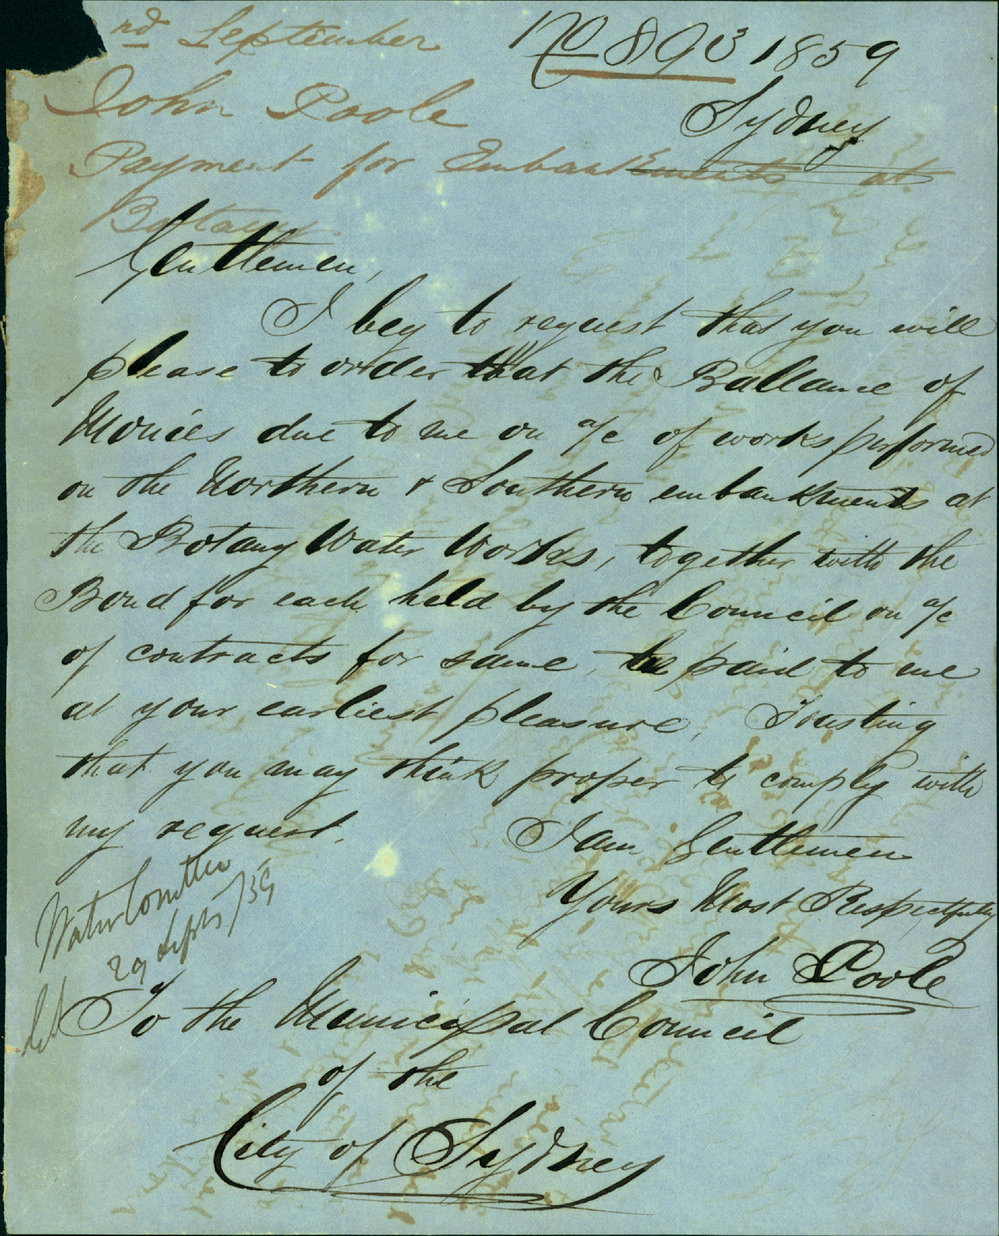 nd September
No 893 1859
John Poole
Sydney
Payment for Embankments at
Botany
Gentlemen,
I beg to request that you will
please to order that the Ballance of
Monies due to me on a/c of works performed
on the Northern & Southern embankments at
the Botany Water Works, together with the
Bond for each held by the Council on a/c
of contracts for same, be paid to me
at your earliest pleasure, Trusting
that you may think proper to comply with
my request.
I am Gentlemen
Yours Most Respectfully
John Poole
Water Comttee
29 Septr/59
To the Municipal Council
of the
City of Sydney